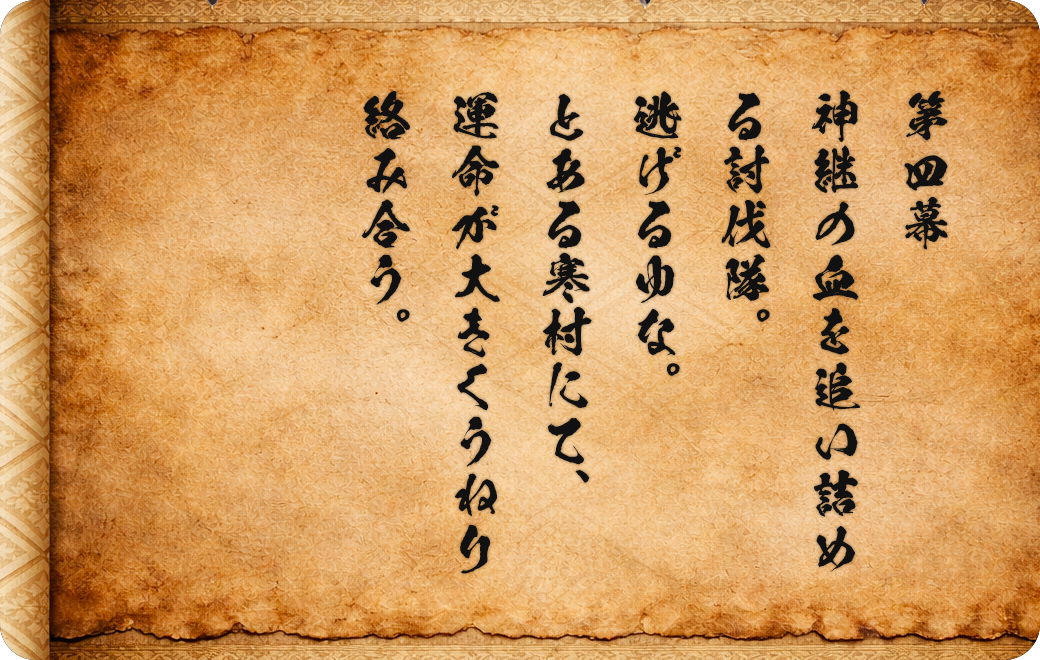 第四幕
神継の血を追い詰め
る討伐隊。
逃げるゆな。
とある寒村にて、
運命が大きくうねり
絡み合う。